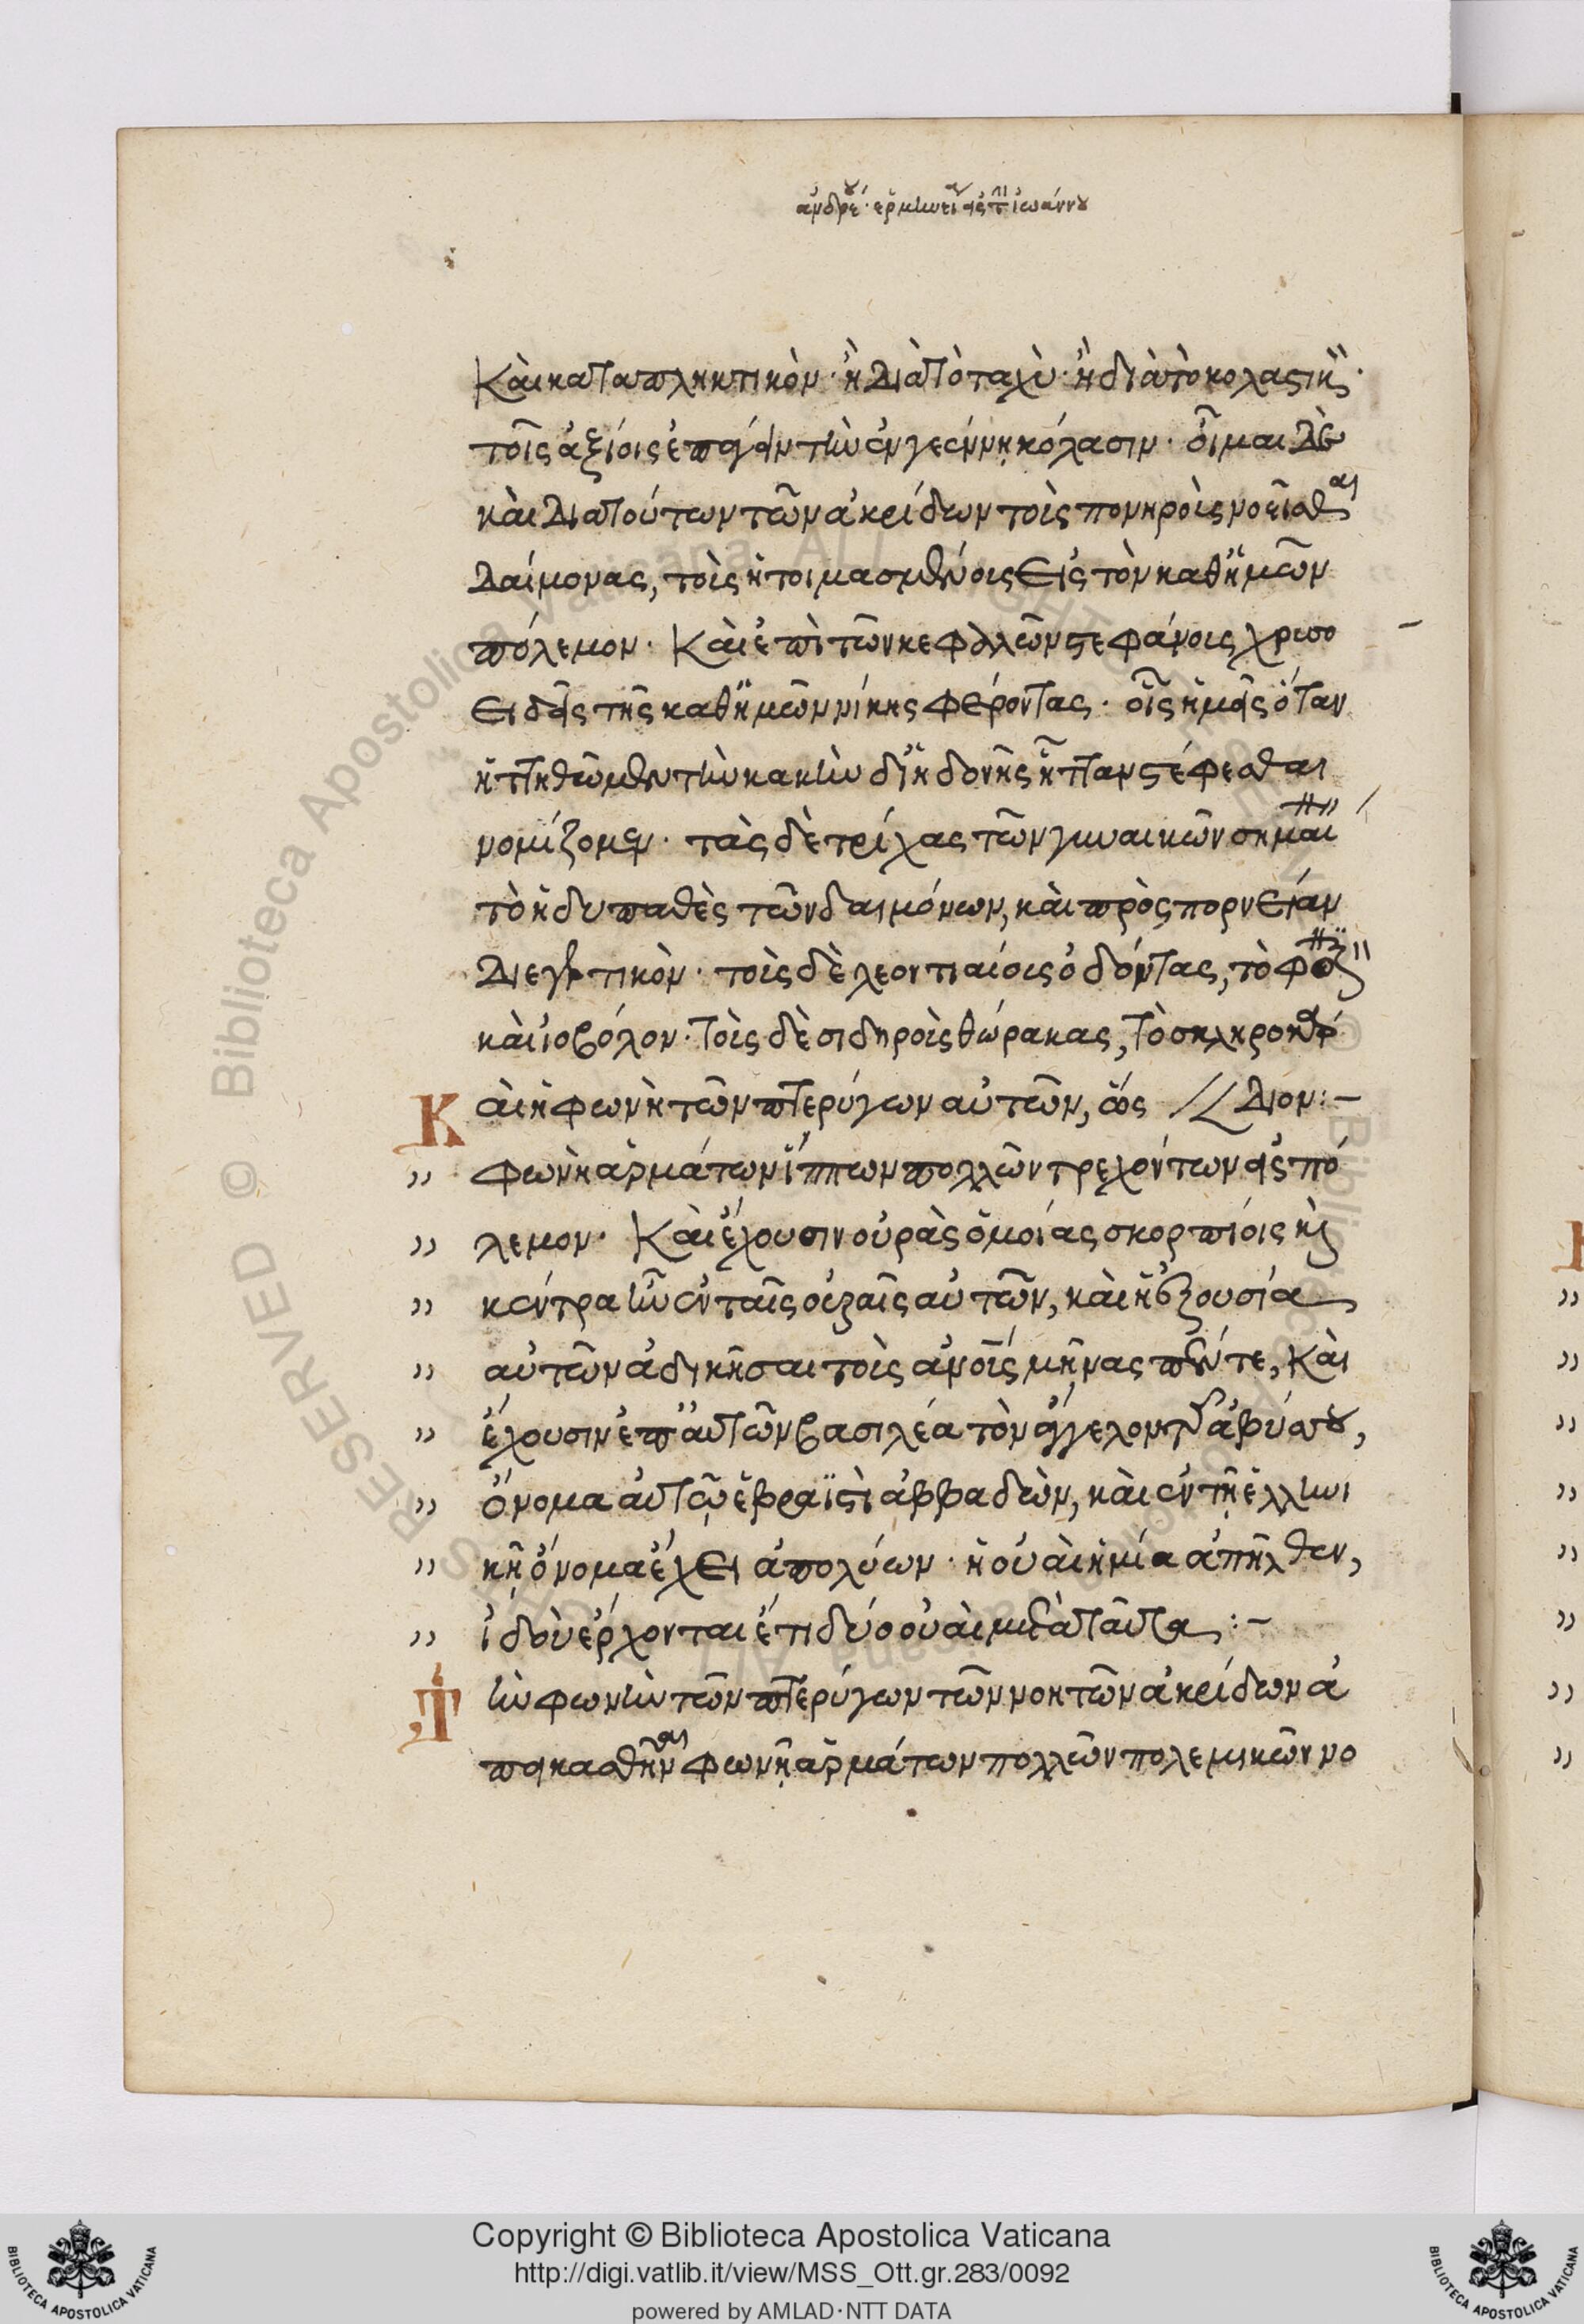 ἀνδρέου ἑρμηνεία εἰς ἐπι ἰωάννου
Καὶ καταπληκτικὸν· ἢ διὰ τὸ ταχὺ· ἢ διὰ τὸ κολαστικὸν·
τοῖς ἀξίοις ἐπάγειν τὴν ἐν γεέννῃ κόλασιν· οἶμαι δὲ
καὶ διὰ τούτων τῶν ἀκρίδων τοὺς πονηροὺς νοεῖσθαι
δαίμονας, τοὺς ἡτοιμασμένους εἰς τὸν καθ' ἡμῶν
πόλεμον· Καὶ ἐπὶ τῶν κεφαλῶν στεφάνους χρυσο
ειδεῖς τῆς καθ' ἡμῶν νίκης φέροντας· οἷς ἡμᾶς ὅταν
ἡττηθῶμεν τὴν κακὴν δι' ἡδονῆς ἧτταν στέφεσθαι
νομίζομεν· τὰς δὲ τρίχας τῶν γυναικῶν σημαί
τὸ ἡδυπαθὲς τῶν δαιμόνων, καὶ πρὸς πορνείαν
διεγερτικὸν· τοὺς δὲ λεοντιαίους ὀδόντας, τὸ
καὶ ἰοβόλον· τοὺς δὲ σιδηροὺς θώρακας, τὸ σκληροκάρ
Καὶ ἡ φωνὴ τῶν πτερύγων αὐτῶν, ὡς // διον:–
" φωνὴ ἁρμάτων ἵππων πολλῶν τρεχόντων εἰς πό
" λεμον· Καὶ ἔχουσιν οὐρὰς ὁμοίας σκορπίοις καὶ
" κέντρα ἦν ἐν ταῖς οὐραῖς αὐτῶν, καὶ ἡ ἐξουσία
" αὐτῶν ἀδικῆσαι τοὺς ἀνους μῆνας πέντε, Καὶ
" ἔχουσιν ἐπ' αὐτῶν βασιλέα τὸν ἄγγελον τῆς ἀβύσσου,
" ὄνομα αὐτῷ ἑβραϊστὶ ἀββαδὼν, καὶ ἐν τῇ ἑλληνι
" κῇ ὄνομα ἔχει ἀπολύων· ἡ οὐαὶ ἡ μία ἀπῆλθεν,
" ἰδοὺ ἔρχονται ἔτι δύο οὐαὶ μετὰ ταῦτα:–
Τὴν φωνὴν τῶν πτερύγων τῶν νοητῶν ἀκρίδων ἀ
πεικασθῆναι φωνῇ ἁρμάτων πολλῶν πολεμικῶν νο
Copyright © Biblioteca Apostolica Vaticana
http://digi.vatlib.it/view/MSS_Ott.gr.283/0092
powered by AMLAD·NTT DATA